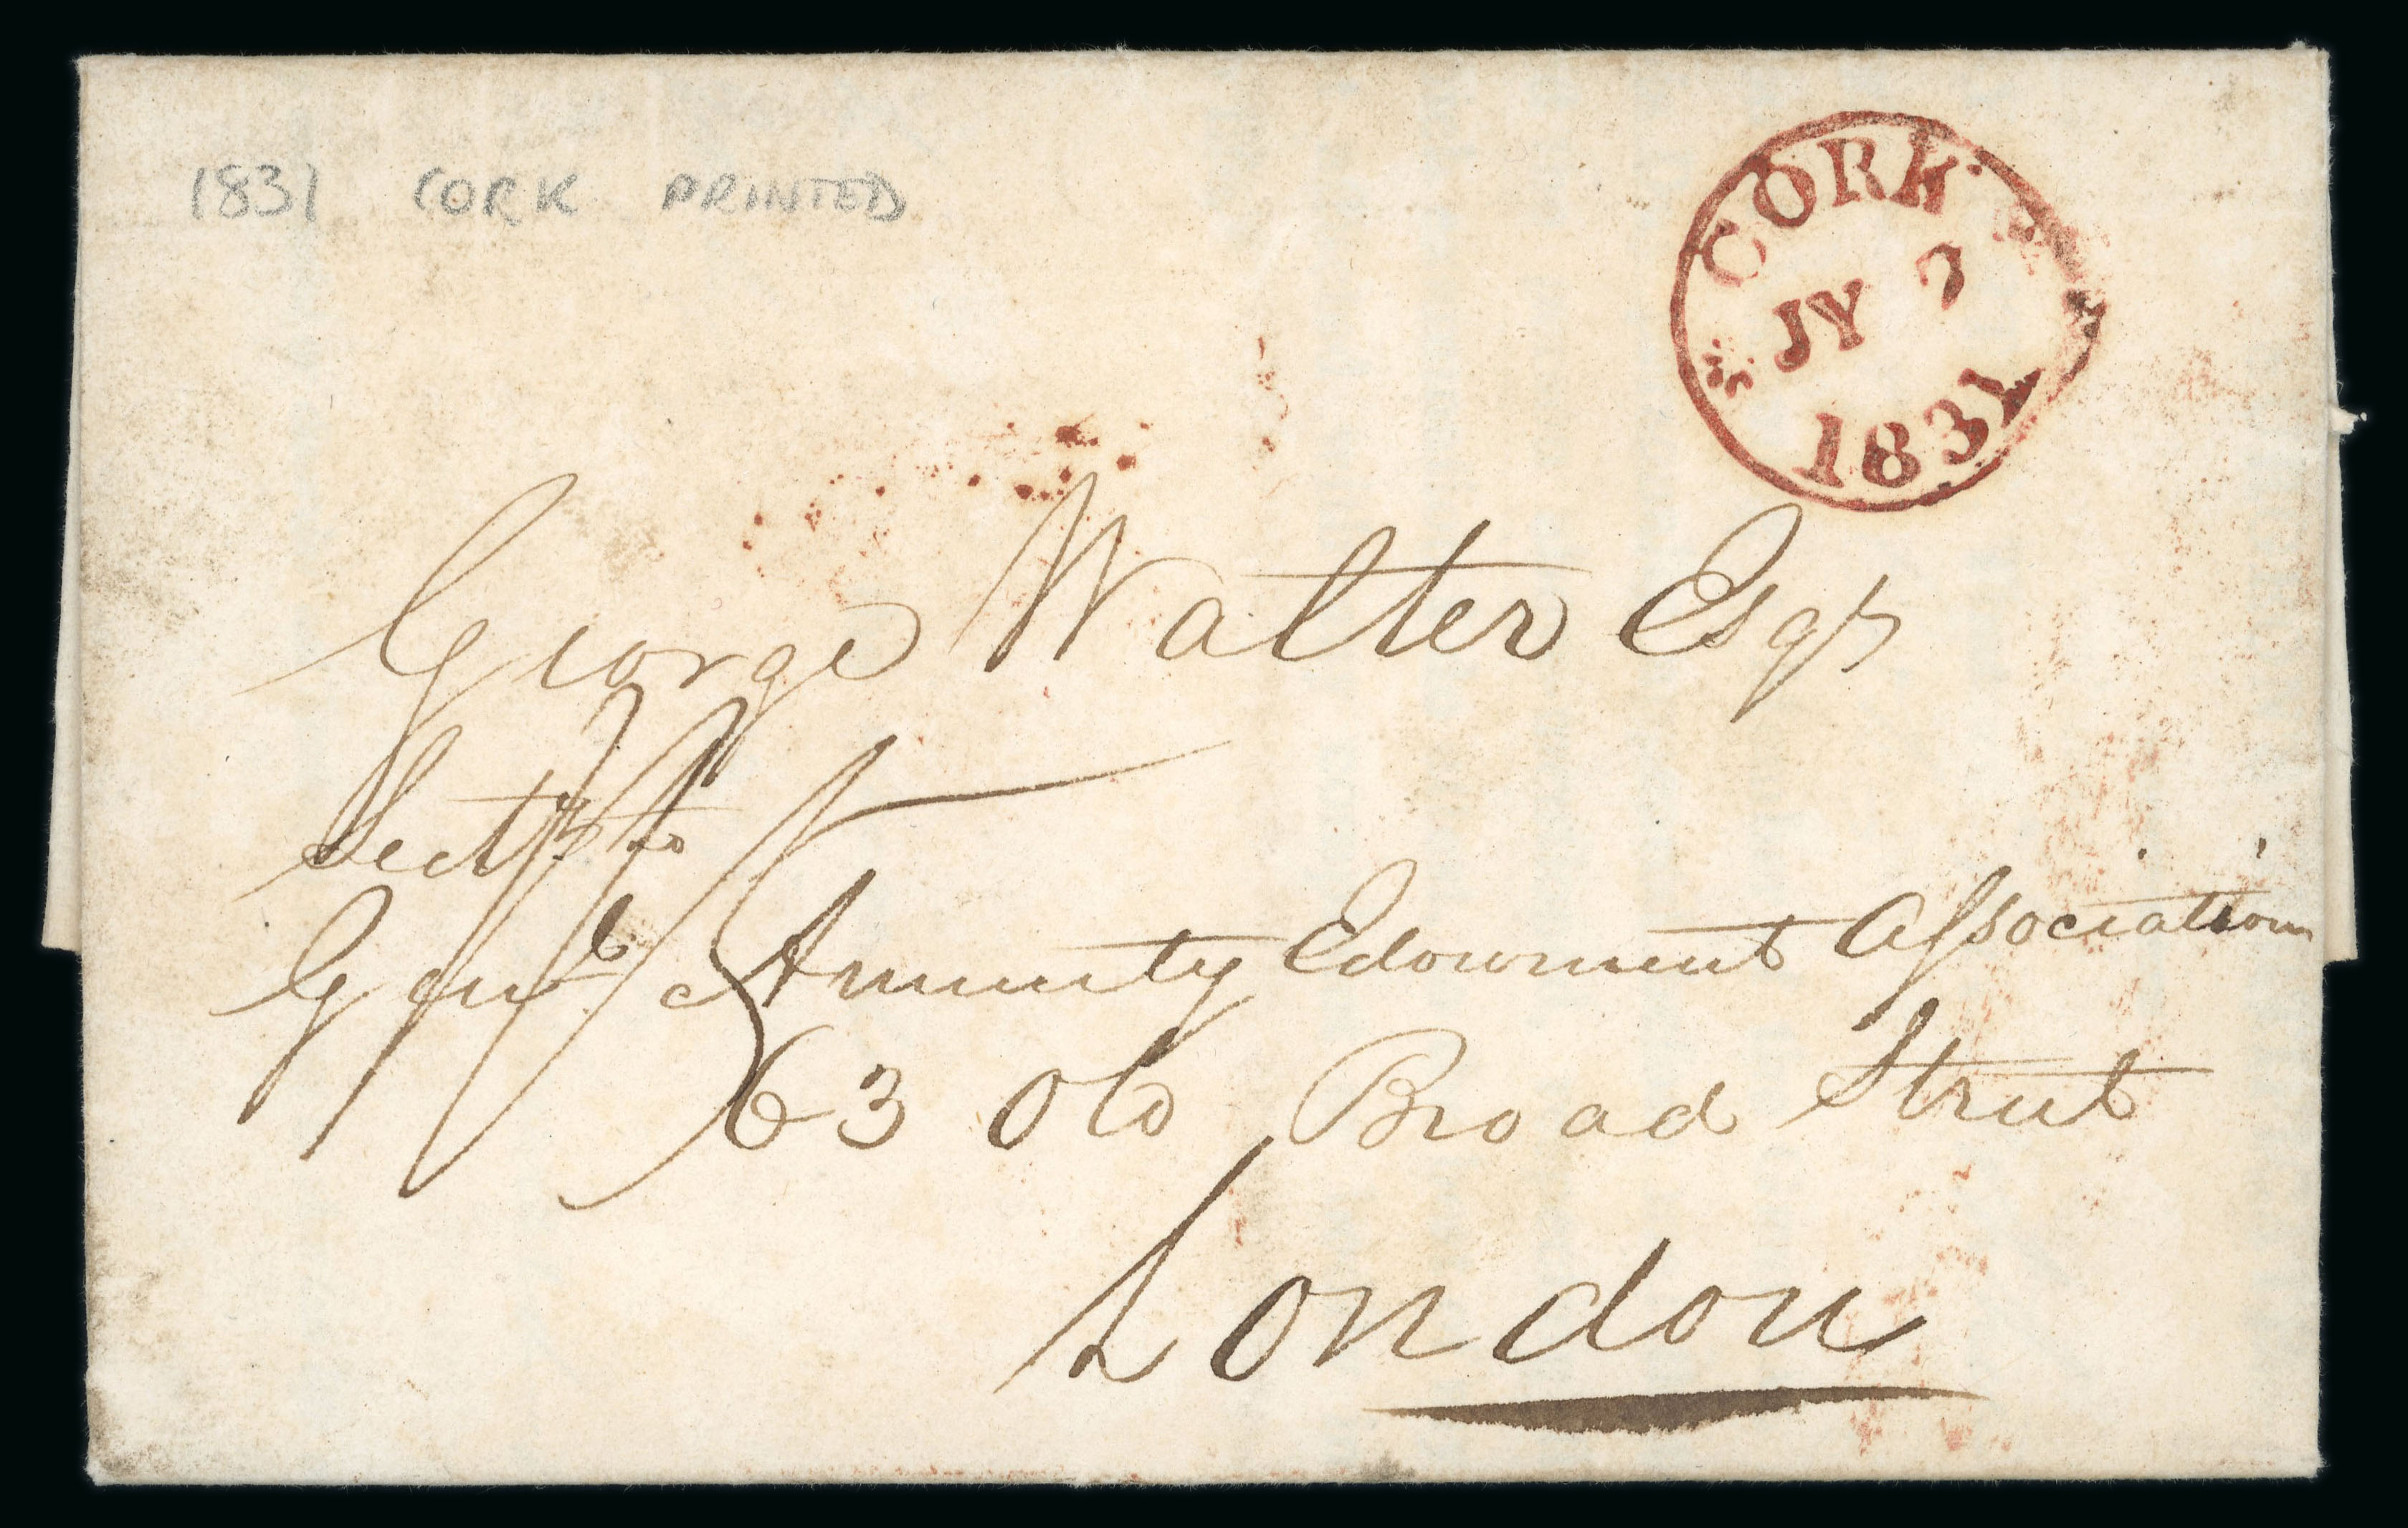 1831 CORK PRINTED
CORK
JY 7
1831
George Walter Esqr
Secty to
Genl Annuity Edowment Association
63 Old Broad Street
London